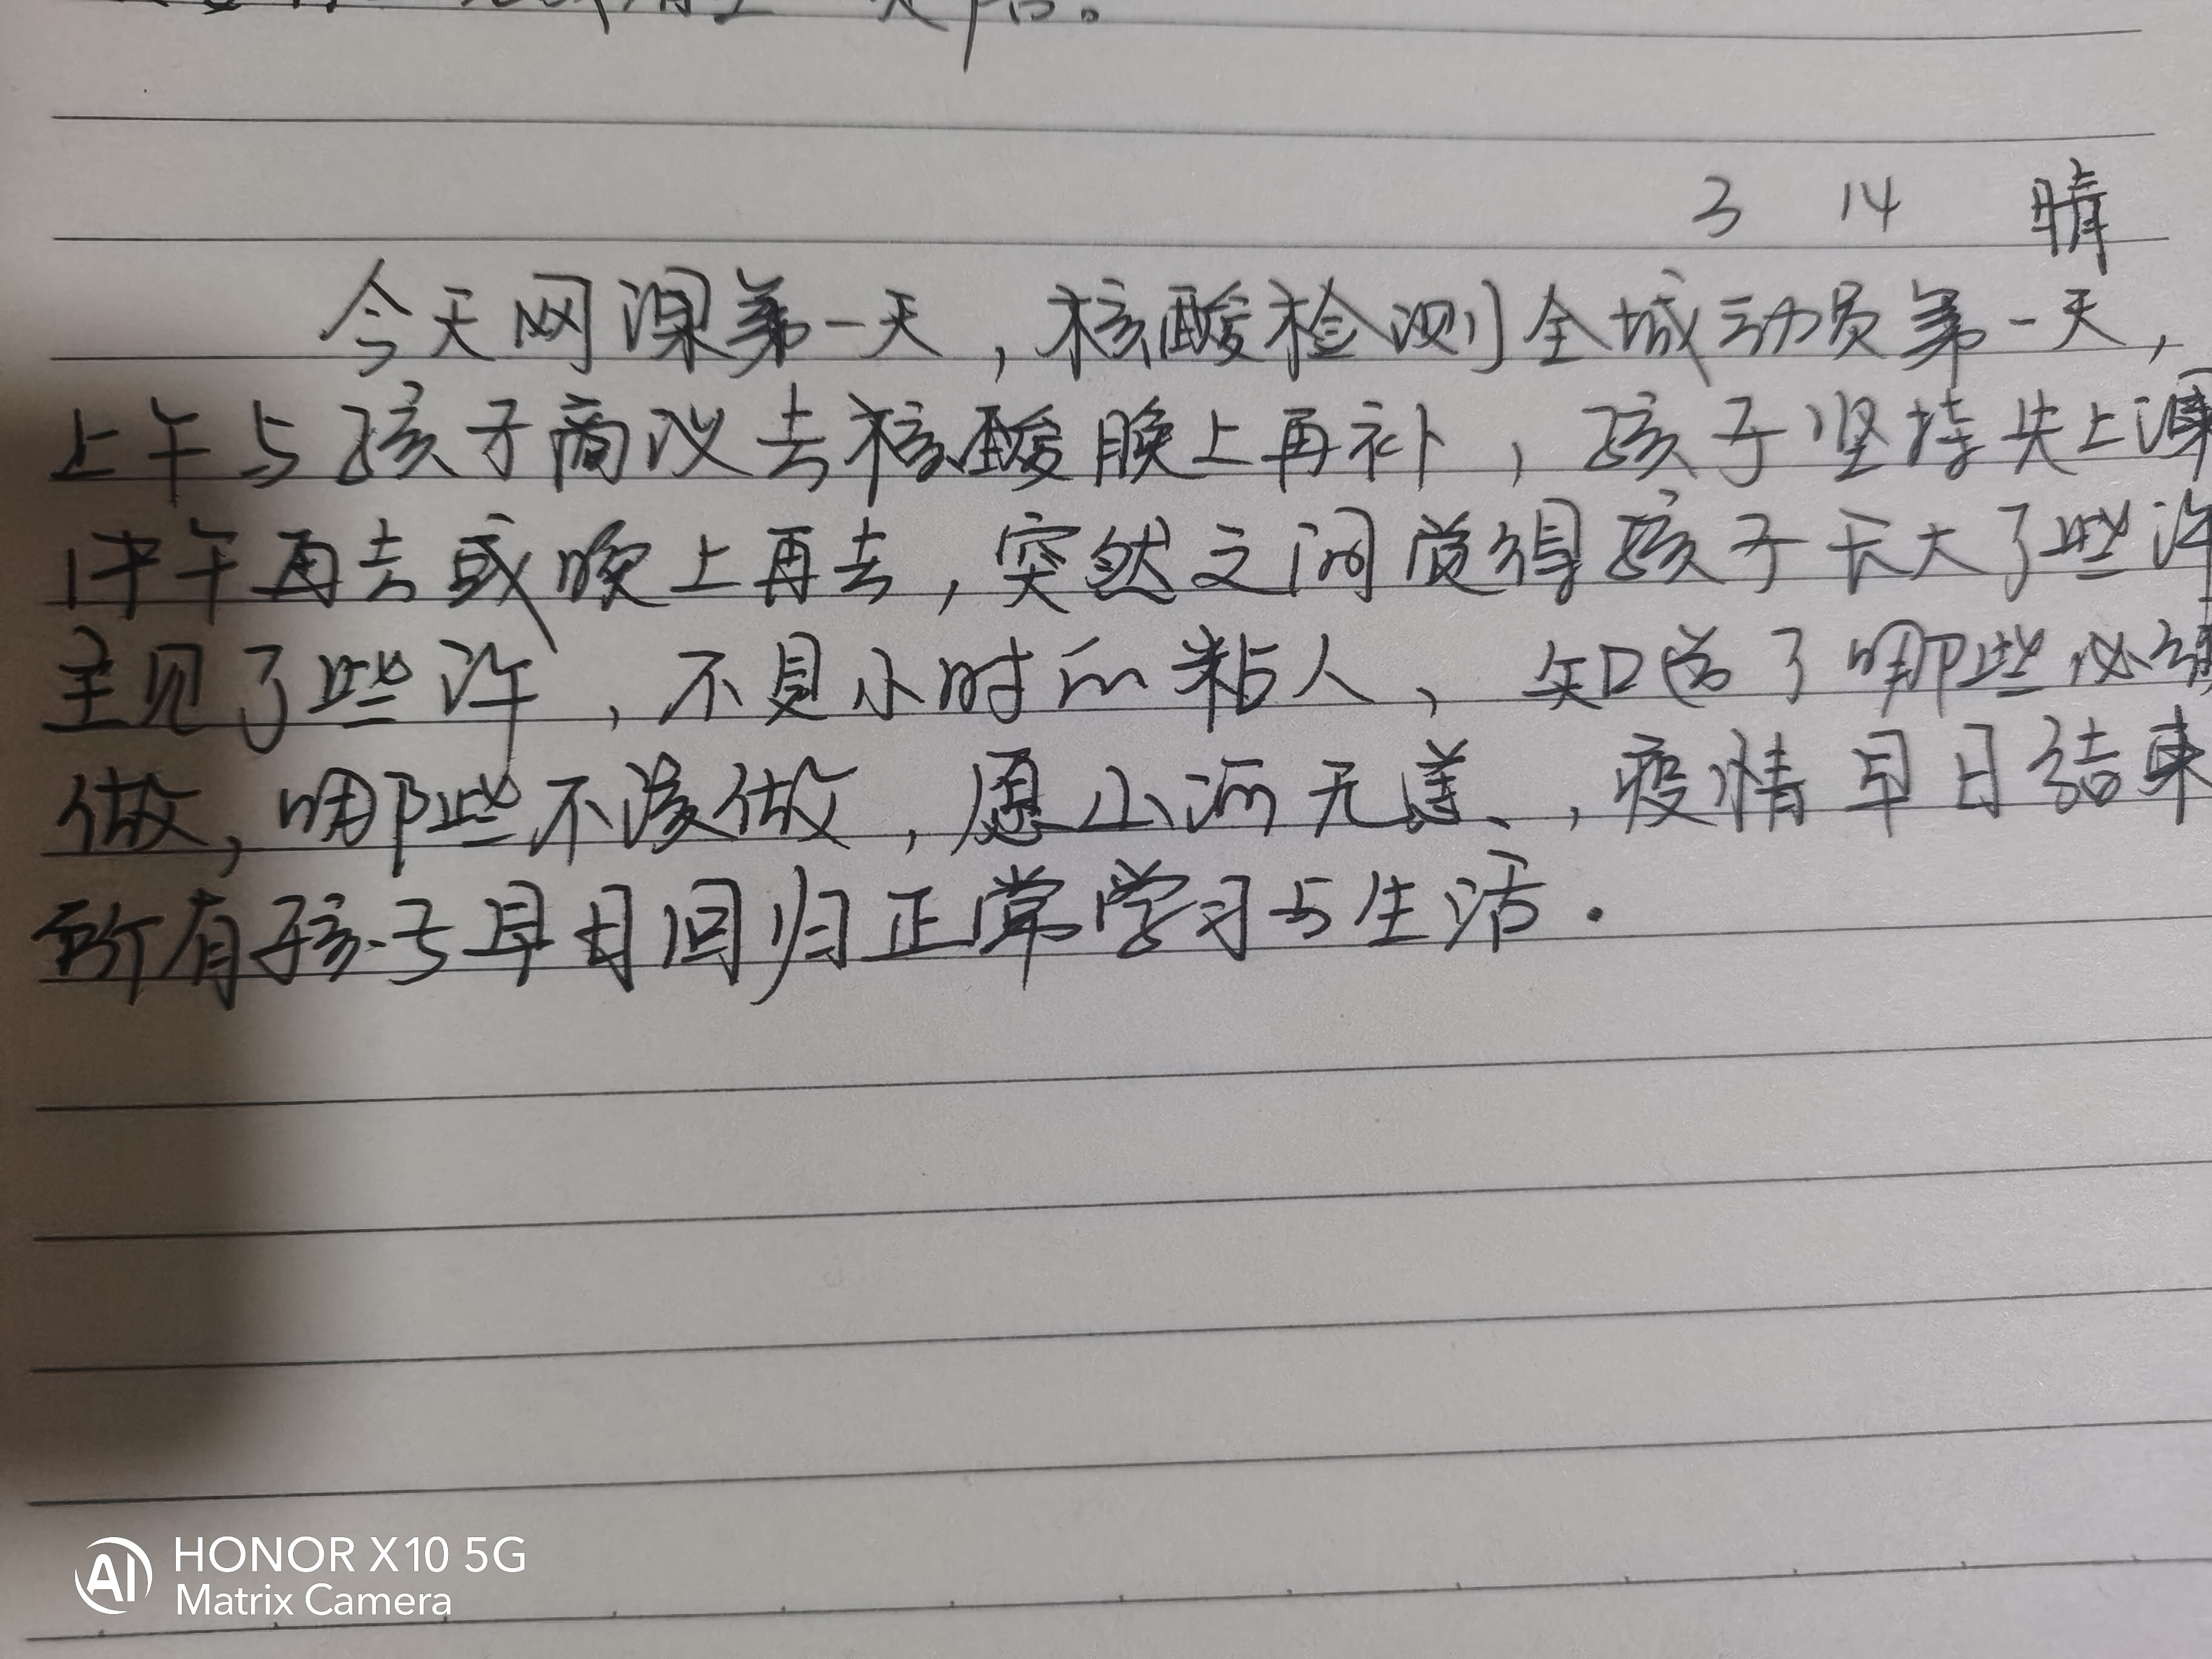 3 14 晴
今天网课第一天，核酸检测全城动员第一天，
上午与孩子商议去核酸晚上再补，孩子坚持先上课
中午再去或晚上再去，突然之间觉得孩子长大了些许
主见了些许，不是小时的粘人、知道了哪些必须
做，哪些不该做，愿山河无恙、，疫情早日结束
所有孩子早日回归正常学习与生活．
AI HONOR X10 5G
Matrix Camera